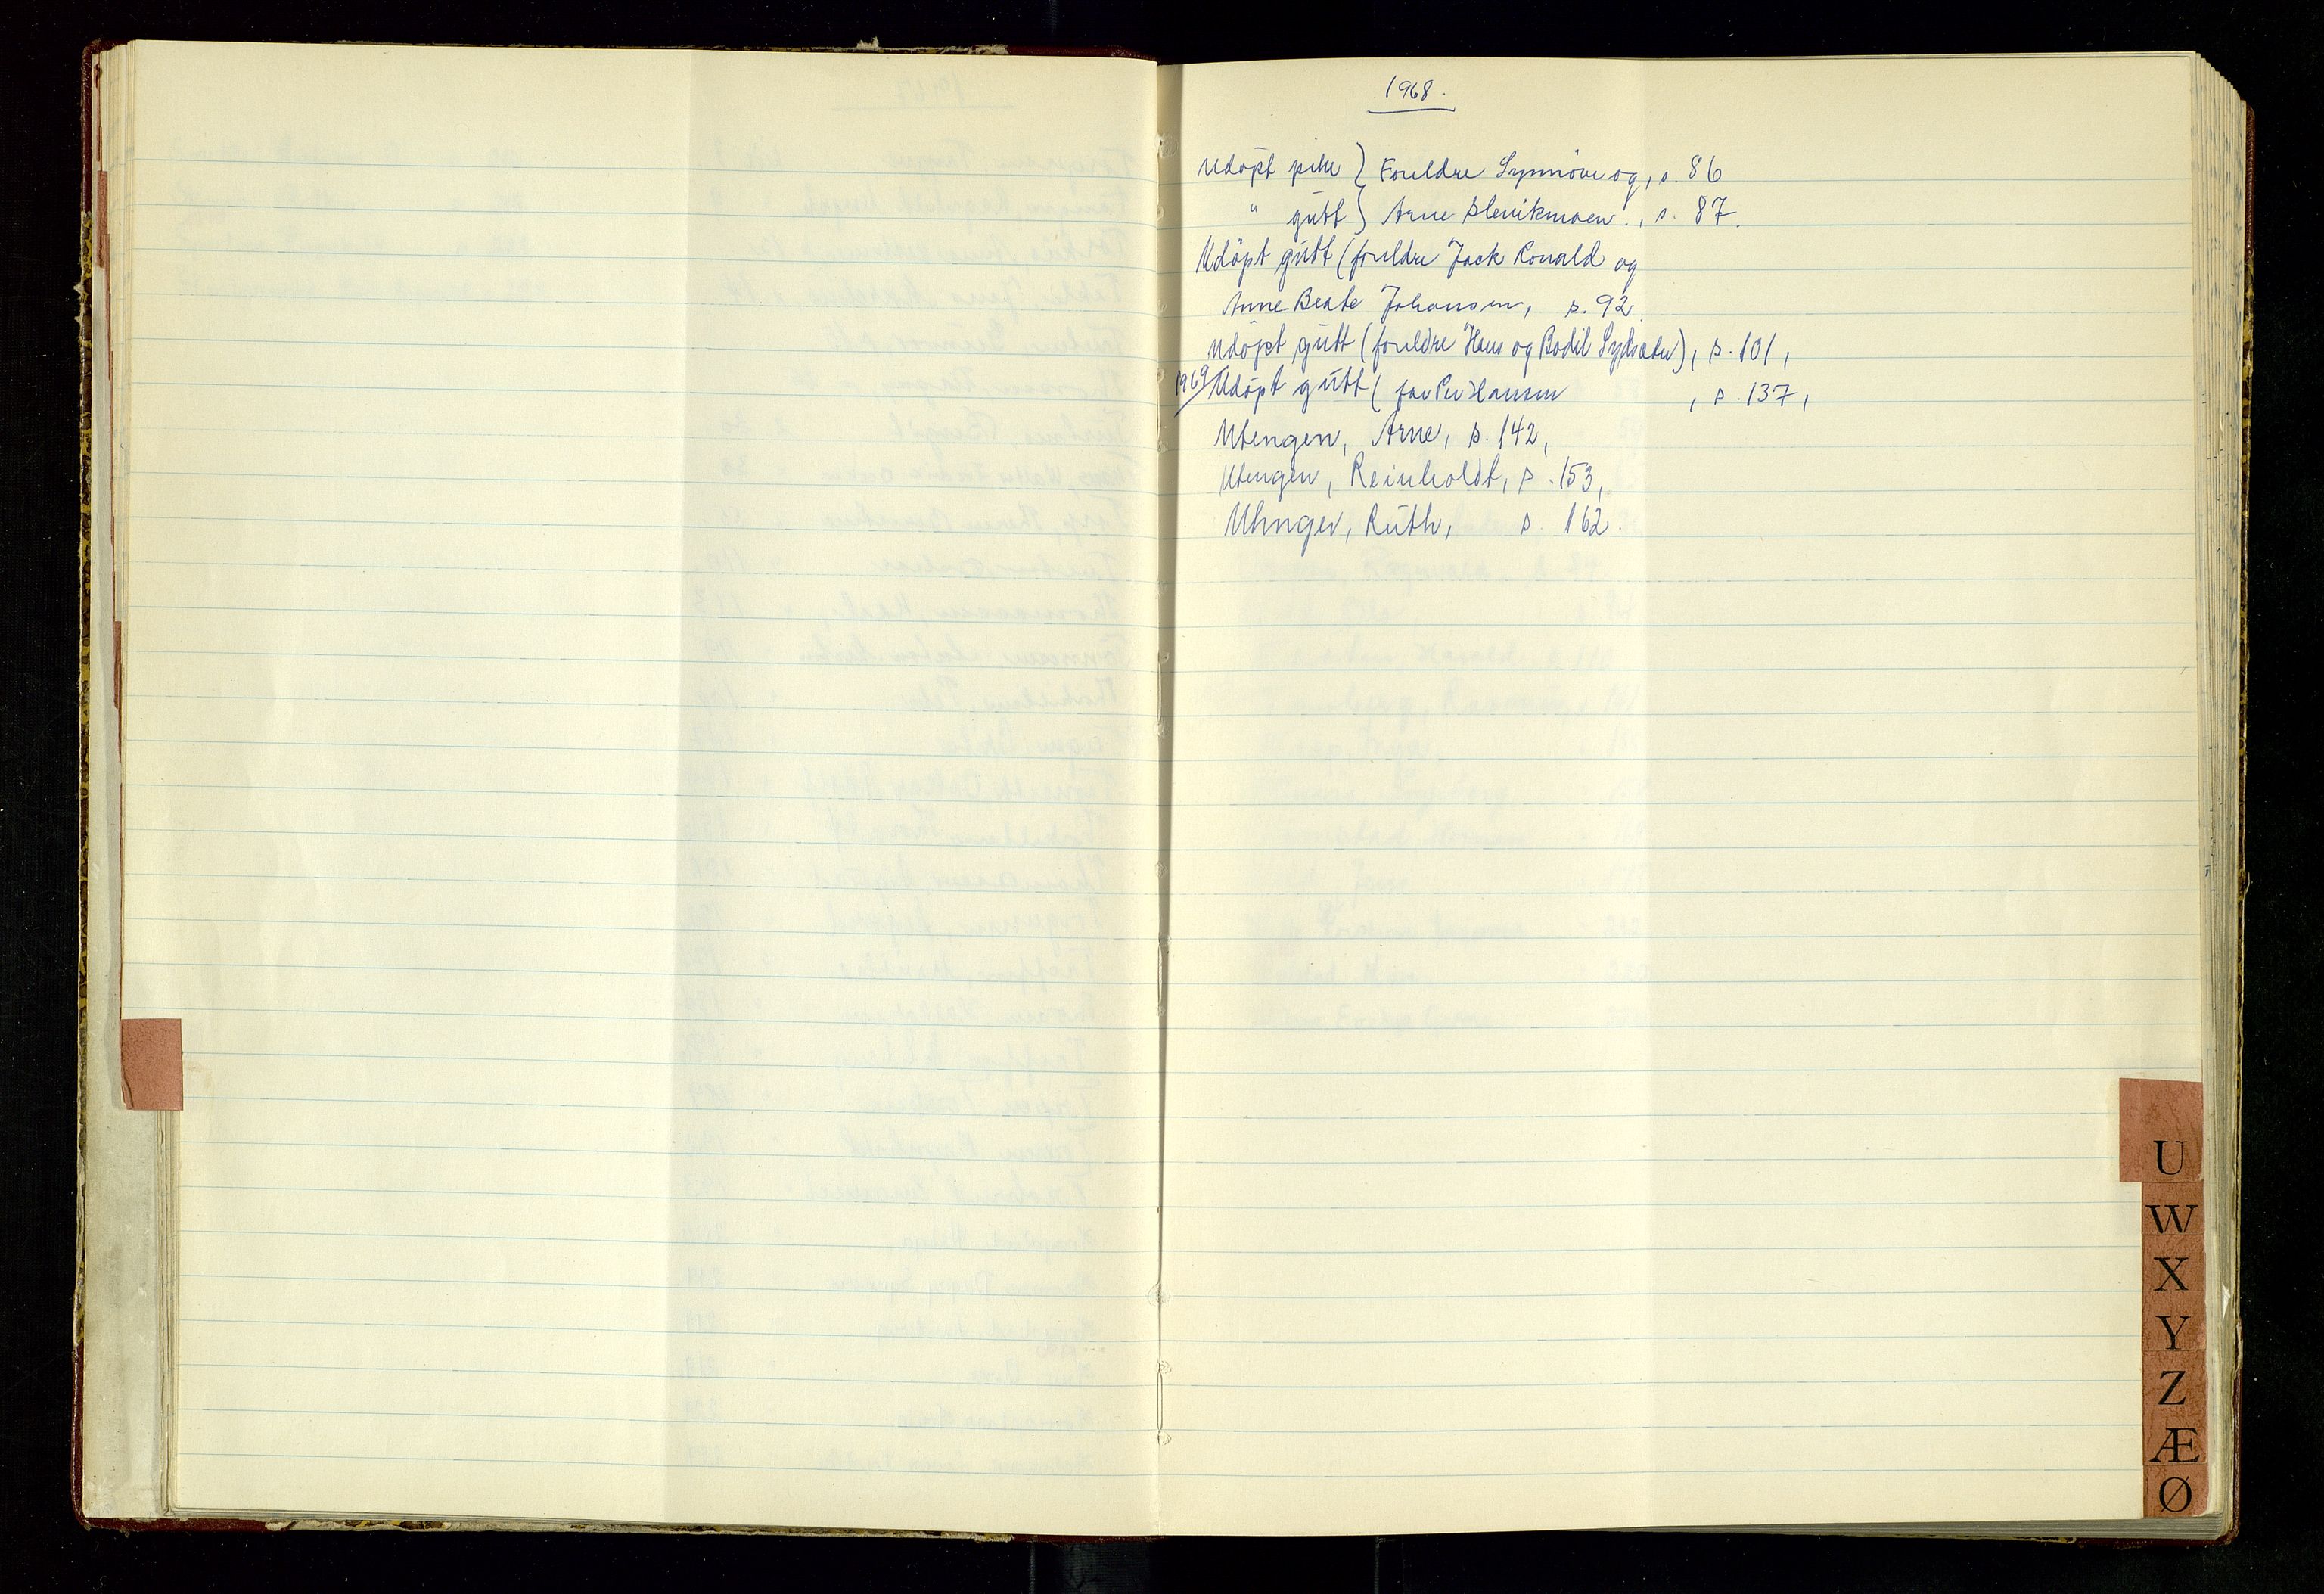 1968.
Udöpt pike } Foreldre Synnöve og, s. 86
" gutt } Arne Slevikmoen., s. 87.
Udöpt gutt (foreldre Jack Ronald og
Anne Beate Johansen, s. 92.
Udöpt gutt (foreldre Hans og Bodil Sydsæter), s. 101,
1969 Udöpt gutt ( far Per Hansen , s. 137,
Utengen, Arne, s. 142,
Utengen, Reinholdt, s. 153,
Utengen, Ruth, s. 162.
U
W
X
Y
Z
Æ
Ø